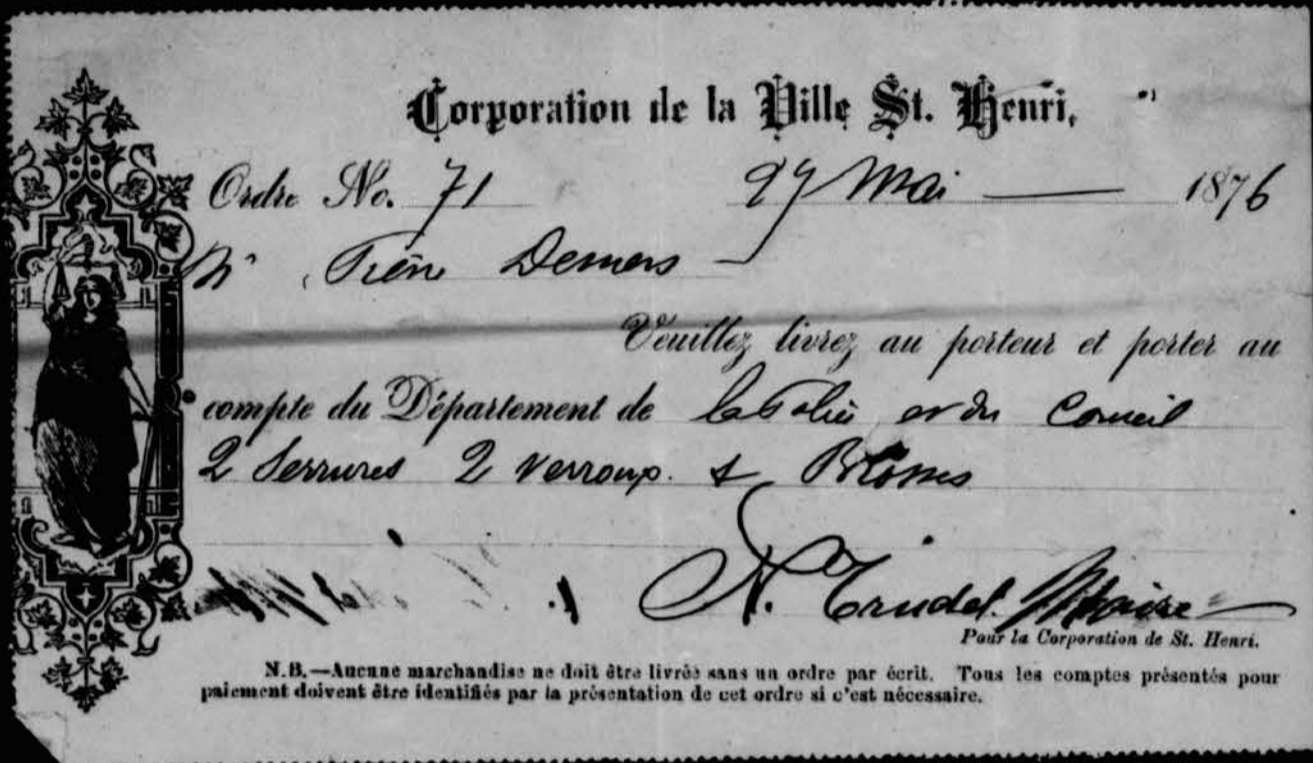 Corporation de la Ville St. Henri,
Ordre No. 71 27 Mai 1876
Mr Demers
Veuillez livrez au porteur et porter au
compte du Département de la Police et du Conseil
2 Serrures 2 Verroux &
N. Trudel Maire
Pour la Corporation de St. Henri.
N.B.—Aucune marchandise ne doit être livrée sans un ordre par écrit. Tous les comptes présentés pour
paiement doivent être identifiés par la présentation de cet ordre si c'est nécessaire.